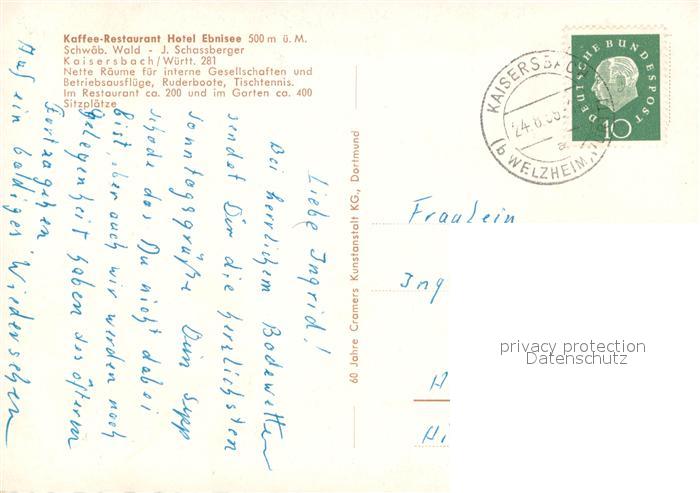 Kaffee-Restaurant Hotel Ebnisee 500 m ü. M.
Schwäb. Wald - J. Schassberger
Kaisersbach/Württ. 281
Nette Räume für interne Gesellschaften und
Betriebsausflüge, Ruderboote, Tischtennis.
Im Restaurant ca. 200 und im Garten ca. 400
Sitzplätze
Liebe Ingrid!
Bei herrlichem Badewetter
sendet Dir die herzlichsten
Sonntagsgrüße Dein Sepp
schade das Du nicht dabei
bist, aber auch wir werden noch
Gelegenheit haben des öfteren
Auf ein baldiges Wiedersehen
60 Jahre Cramers Kunstanstalt KG., Dortmund
DEUTSCHE BUNDESPOST
10
KAISERSBACH
24.8.
WELZHEIM
Fraulein
Ing
H
Hi
privacy protection
Datenschutz